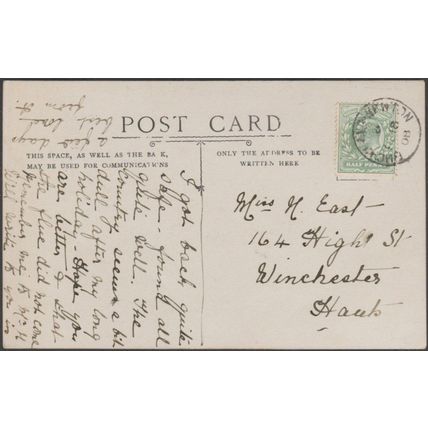 POST CARD
THIS SPACE, AS WELL AS THE BACK,
MAY BE USED FOR COMMUNICATIONS
ONLY THE ADDRESS TO BE
WRITTEN HERE
HALF PENNY
Miss N. East
164 High St
Winchester
Hants
I got back quite
safe - found all
quite well. The
country seems a bit
dull after my long
holiday - Hope you
are better & that
the flue did not come
Remember me to Mrs
Will write to you in
a few days
best love
from